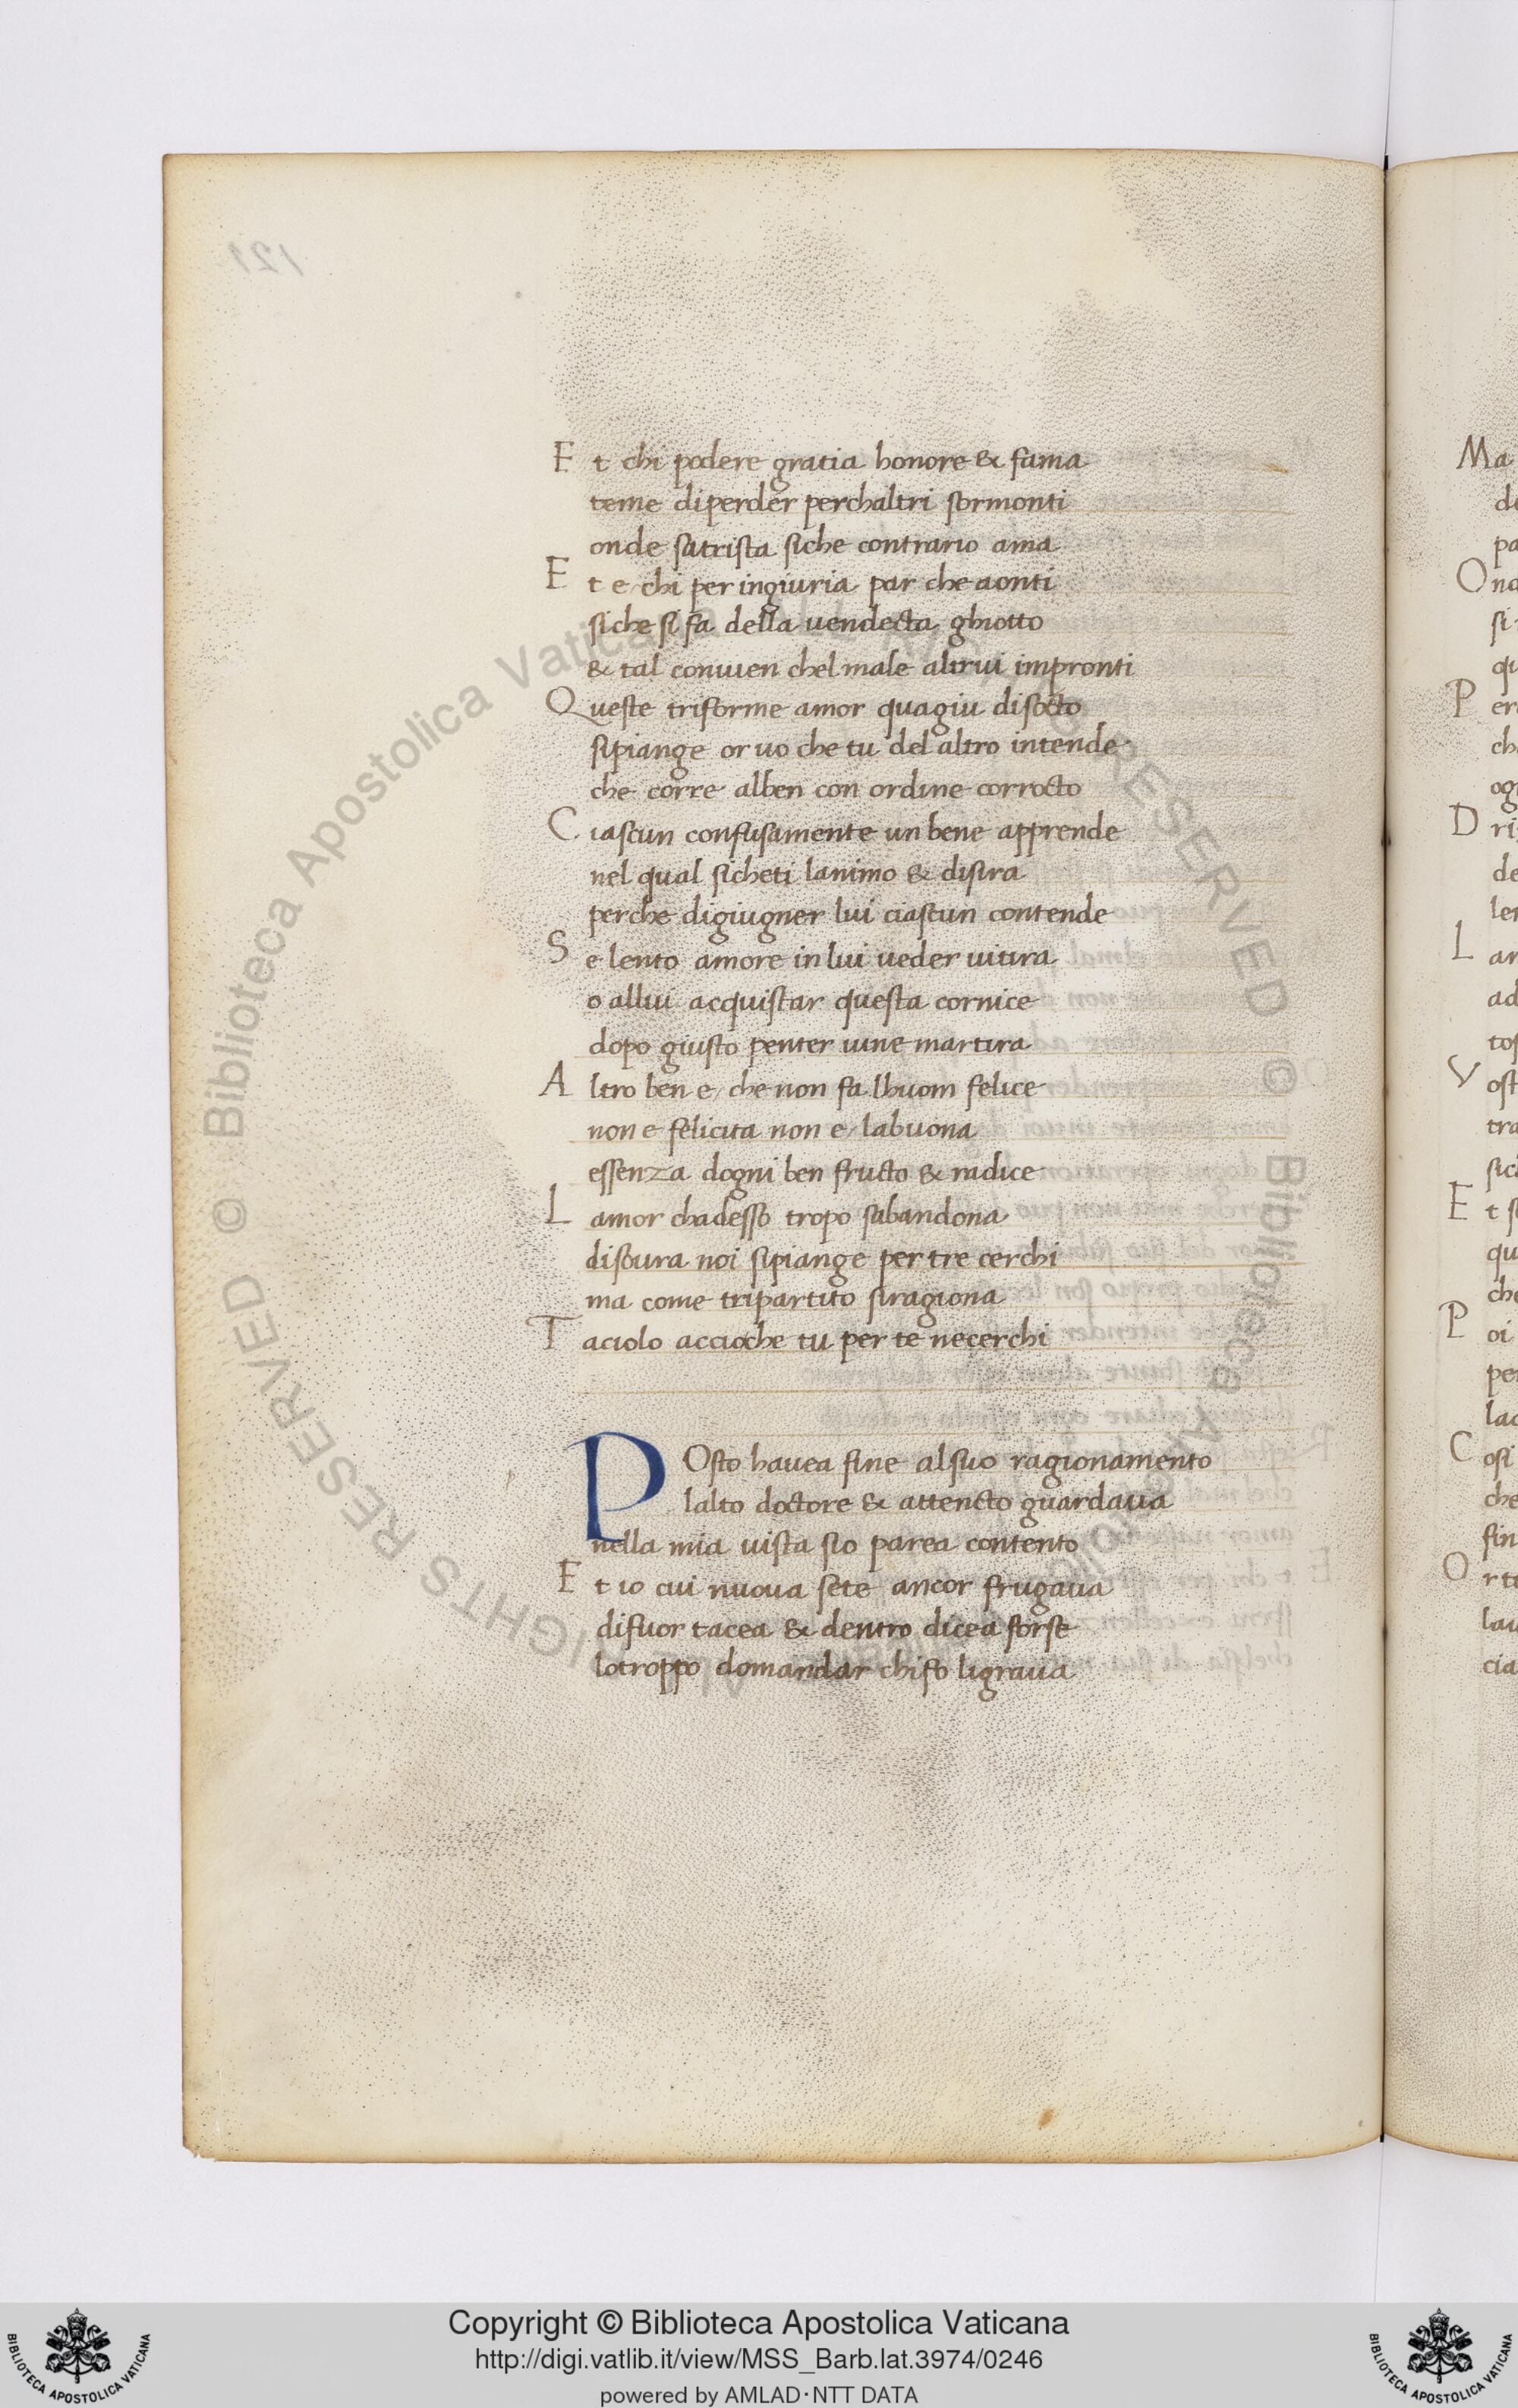 Et chi podere gratia honore & fama
teme diperder perchaltri sormonti
onde satrista siche contrario ama
Et e chi per ingiuria par che aonti
siche si fa della uendecta ghiotto
& tal conuien chel male altrui impronti
Queste triforme amor quagiu disocto
sipiange or uo che tu del altro intende
che corre alben con ordine corrocto
Ciascun confusamente un bene apprende
nel qual sicheti lanimo & disira
perche digiugner lui ciascun contende
Se lento amore in lui ueder uitira
o allui acquistar questa cornice
dopo giusto penter uine martira
Altro ben e che non fa lhuom felice
non e felicita non e labuona
essenza dogni ben fructo & radice
Lamor chadesso tropo sabandona
disoura noi sipiange per tre cerchi
ma come tripartito siragiona
Taciolo accioche tu per te necerchi
POsto hauea fine alsuo ragionamento
lalto doctore & attencto guardaua
nella mia uista sio parea contento
Et io cui nuoua sete ancor frugaua
difuor tacea & dentro dicea forse
lotroppo domandar chifo ligraua
Ma
Ona
Copyright © Biblioteca Apostolica Vaticana
http://digi.vatlib.it/view/MSS_Barb.lat.3974/0246
powered by AMLAD·NTT DATA
BIBLIOTECA APOSTOLICA VATICANA
BIBLIOTECA APOSTOLICA VATICANA